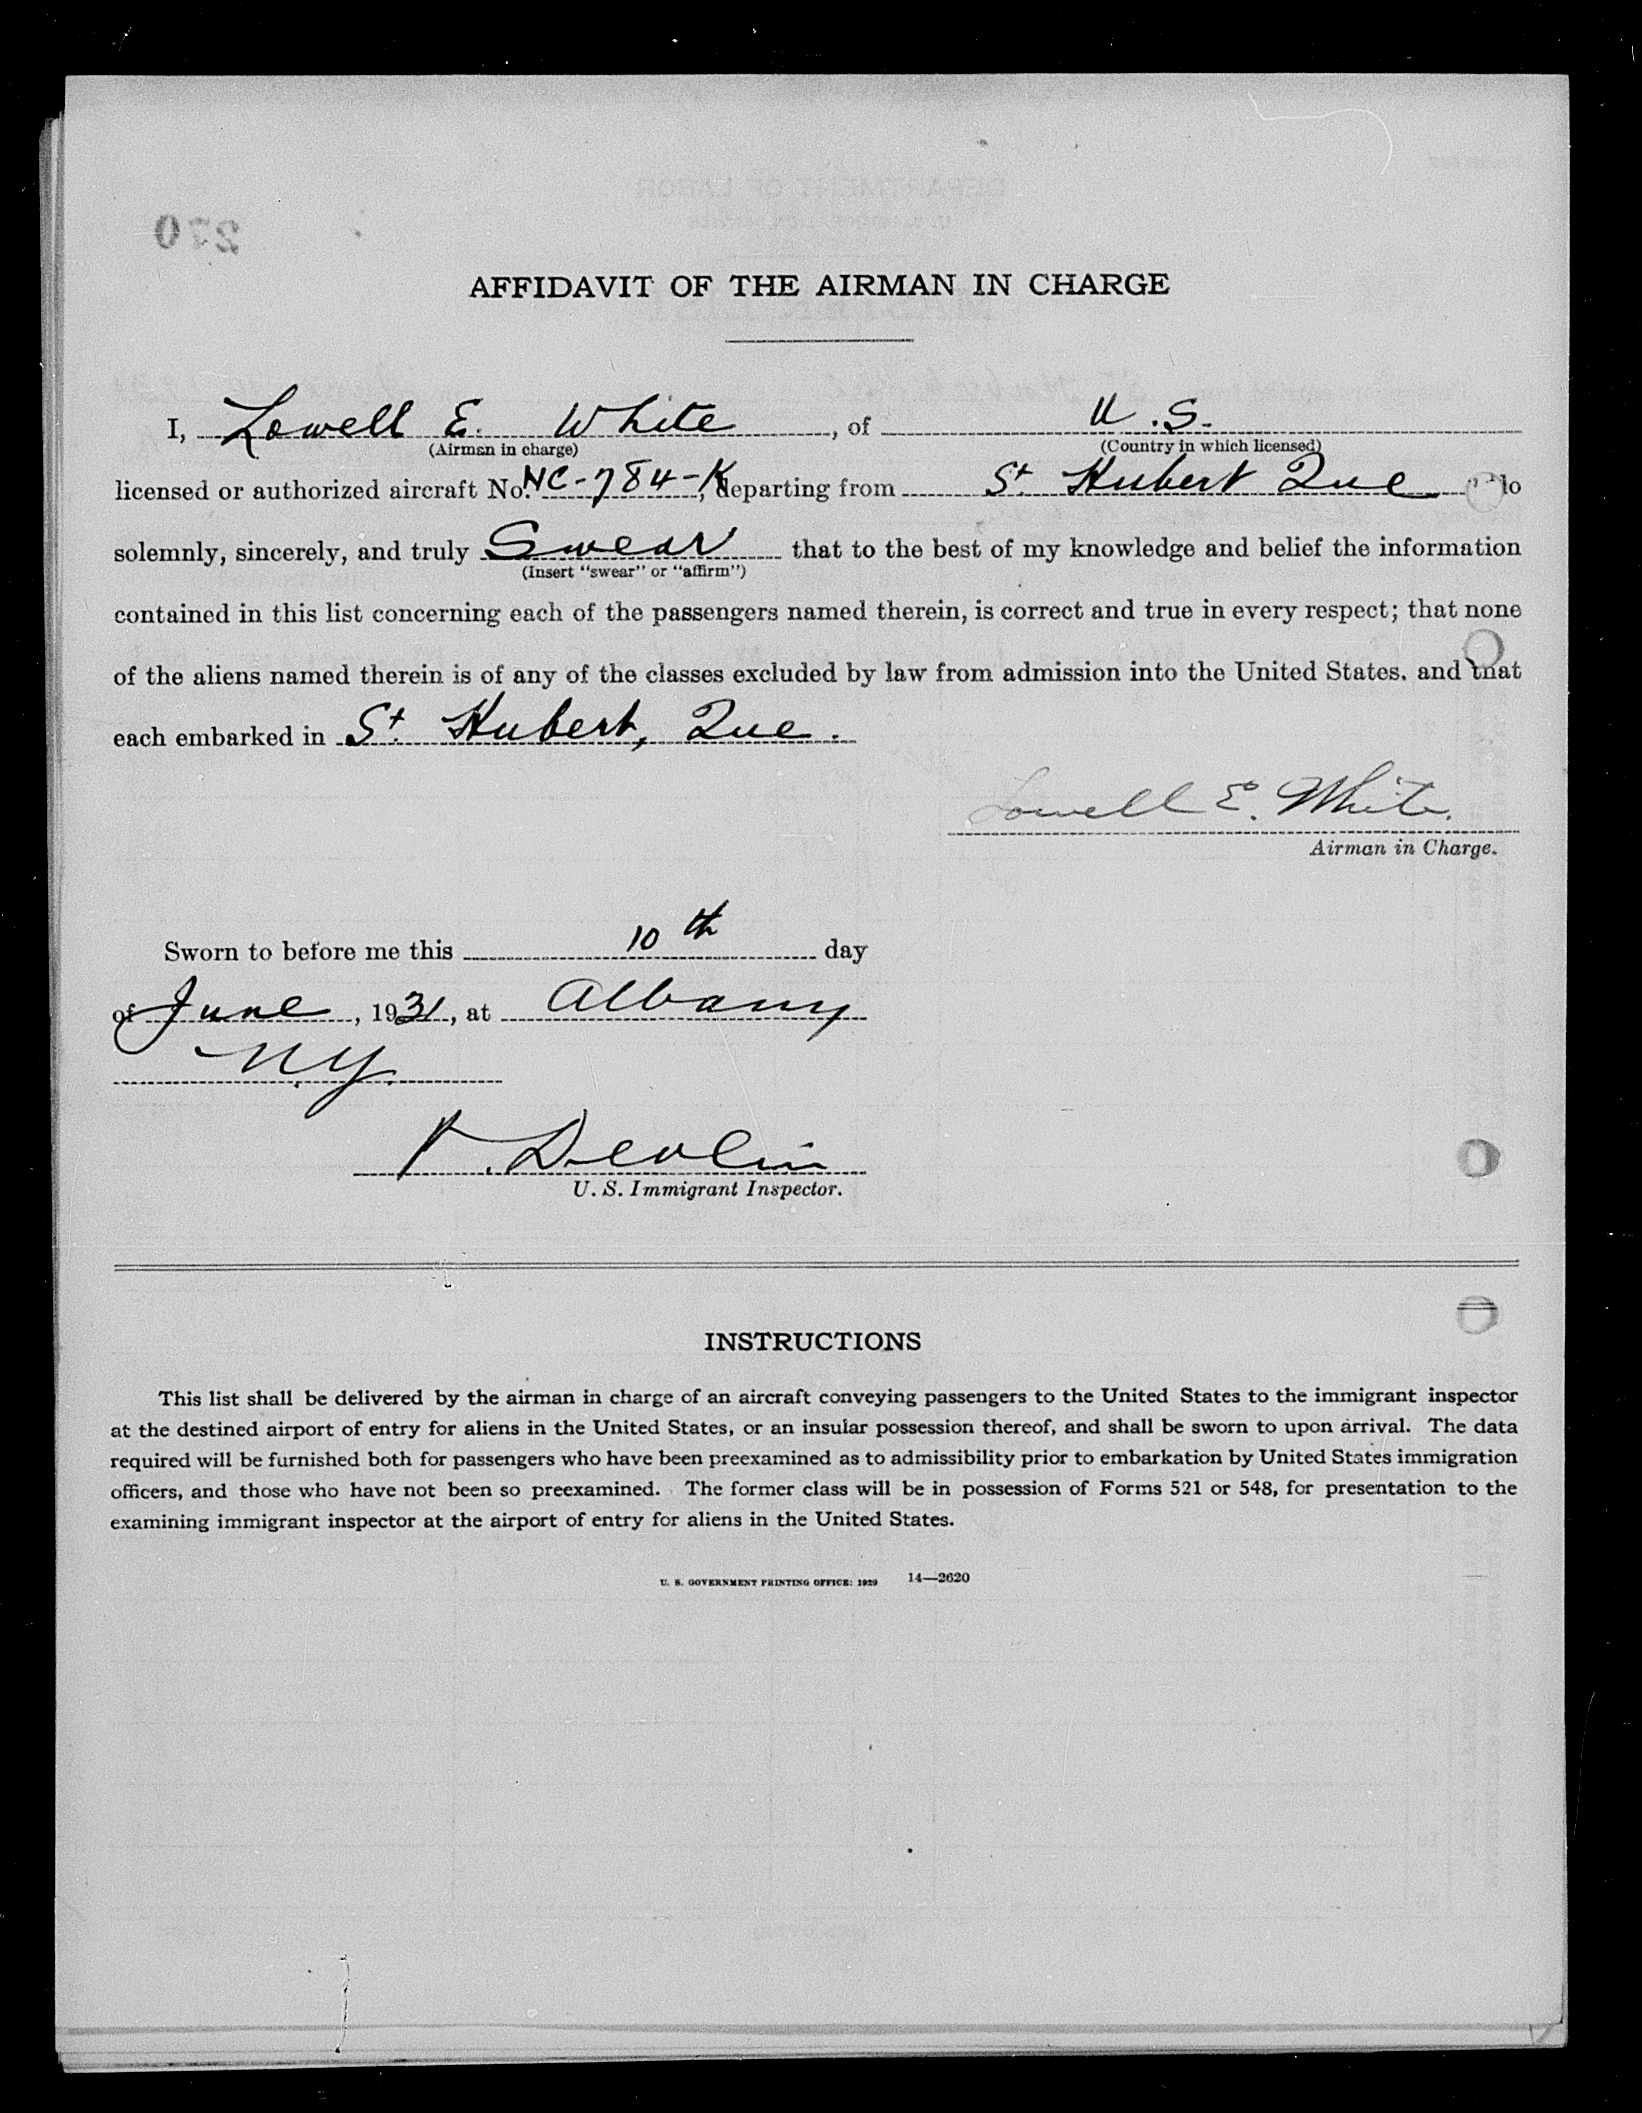 270
AFFIDAVIT OF THE AIRMAN IN CHARGE
I, Lowell E. White, of U.S.
(Airman in charge) (Country in which licensed)
licensed or authorized aircraft No. NC-784-K, departing from St. Hubert Que do
solemnly, sincerely, and truly Swear that to the best of my knowledge and belief the information
(Insert "swear" or "affirm")
contained in this list concerning each of the passengers named therein, is correct and true in every respect; that none
of the aliens named therein is of any of the classes excluded by law from admission into the United States, and that
each embarked in St. Hubert, Que.
Lowell E. White.
Airman in Charge.
Sworn to before me this 10th day
of June, 1931, at Albany
N.Y.
P. Devlin
U. S. Immigrant Inspector.
INSTRUCTIONS
This list shall be delivered by the airman in charge of an aircraft conveying passengers to the United States to the immigrant inspector
at the destined airport of entry for aliens in the United States, or an insular possession thereof, and shall be sworn to upon arrival. The data
required will be furnished both for passengers who have been preexamined as to admissibility prior to embarkation by United States immigration
officers, and those who have not been so preexamined. The former class will be in possession of Forms 521 or 548, for presentation to the
examining immigrant inspector at the airport of entry for aliens in the United States.
U. S. GOVERNMENT PRINTING OFFICE: 1929 14—2620